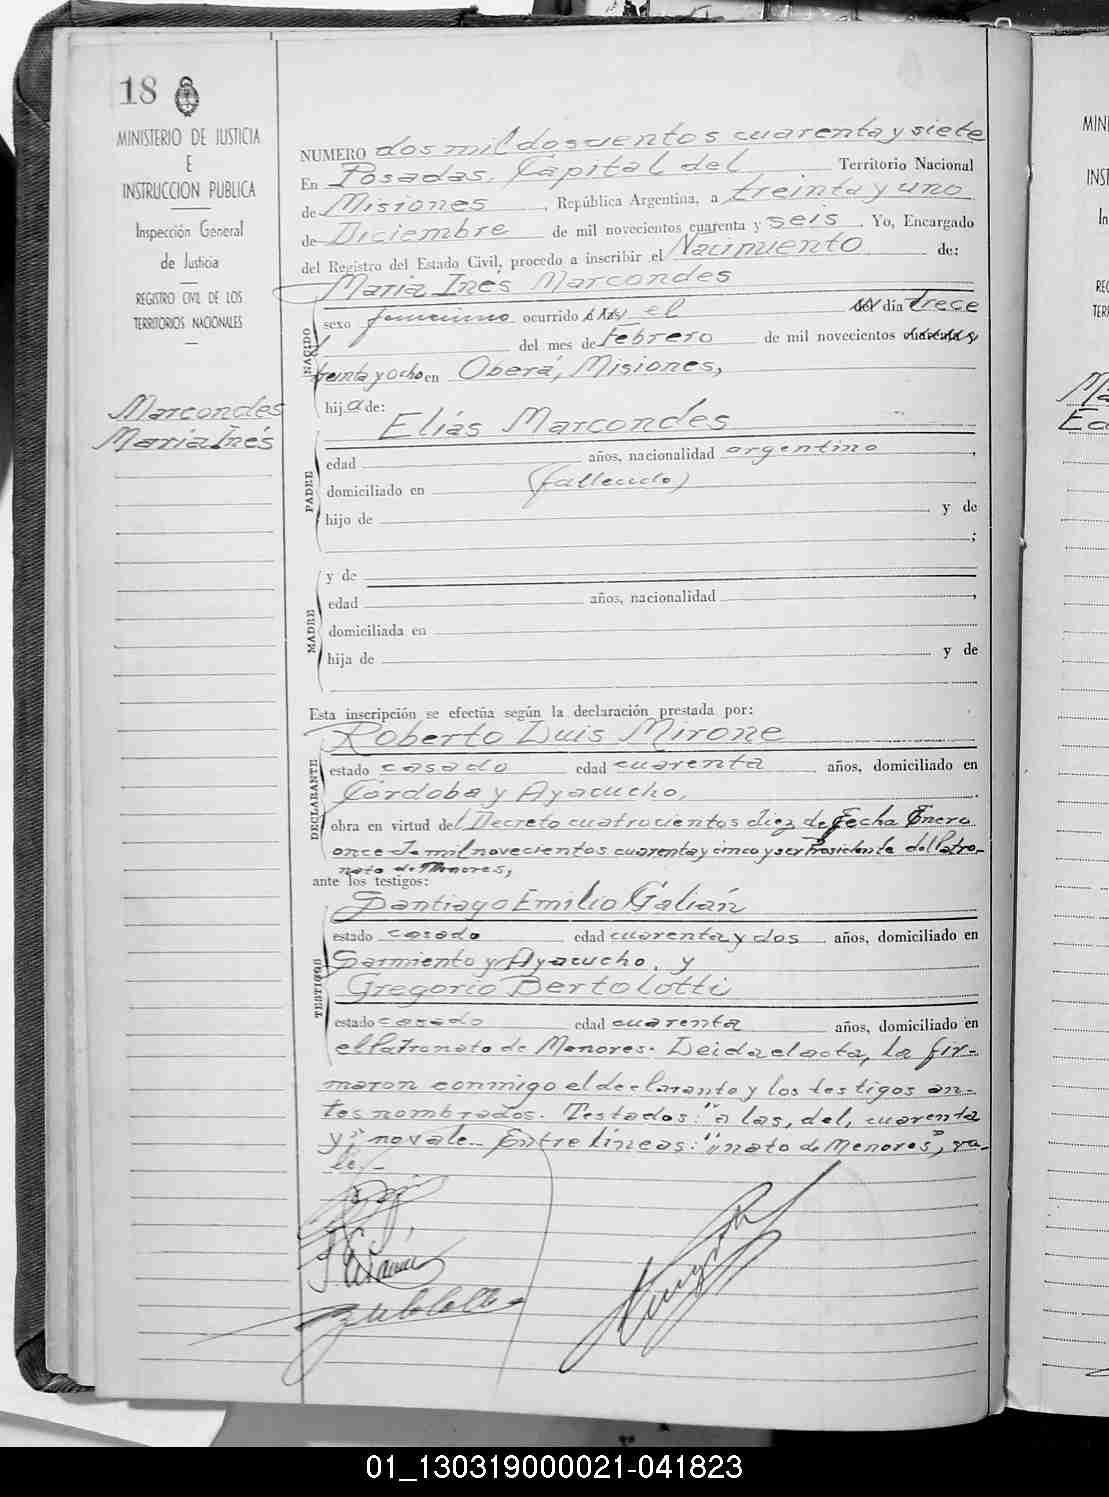 18
MINISTERIO DE JUSTICIA
E
INSTRUCCION PUBLICA
Inspección General
de Justicia
REGISTRO CIVIL DE LOS
TERRITORIOS NACIONALES
Marcondes
María Inés
NUMERO dos mil doscientos cuarenta y siete
En Posadas, Capital del Territorio Nacional
de Misiones, República Argentina, a treinta y uno
de Diciembre de mil novecientos cuarenta y seis. Yo, Encargado
del Registro del Estado Civil, procedo a inscribir el Nacimiento de:
María Inés Marcondes
NACIDO
sexo femenino ocurrido a las el del día trece
del mes de Febrero de mil novecientos cuarenta y
treinta y ocho en Oberá, Misiones,
hija de:
Elías Marcondes
PADRE
edad años, nacionalidad argentino,
domiciliado en (fallecido)
hijo de y de
;
y de
MADRE
edad años, nacionalidad ,
domiciliada en
hija de y de
Esta inscripción se efectúa según la declaración prestada por:
Roberto Luis Mirone
DECLARANTE
estado casado edad cuarenta años, domiciliado en
Córdoba y Ayacucho,
obra en virtud del Decreto cuatrocientos diez de fecha Enero
once de mil novecientos cuarenta y cinco y ser Presidente del Patro-
nato de Menores,
ante los testigos:
Santiago Emilio Galián
TESTIGOS
estado casado edad cuarenta y dos años, domiciliado en
Sarmiento y Ayacucho, y
Gregorio Bertolotti
estado casado edad cuarenta años, domiciliado en
el Patronato de Menores. Leida el acta, la fir-
maron conmigo el declarante y los testigos an-
tes nombrados. Testados: "a las, del, cuarenta
y" no vale. Entre líneas: "nato de Menores", va-
le.-
MIN
INST
In
REG
TERR
Ma
01_130319000021-041823